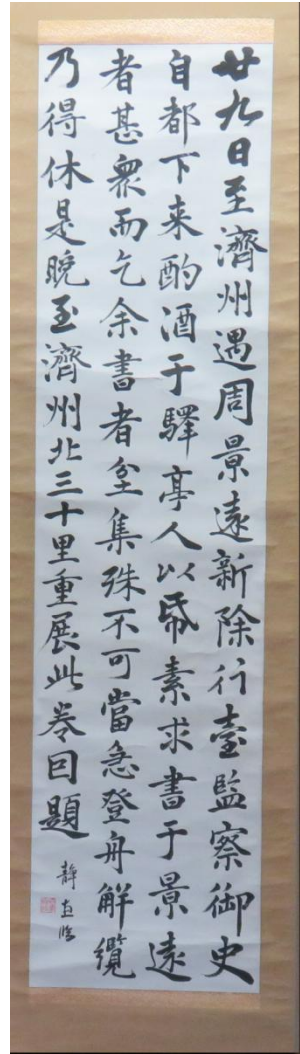 廿九日至濟州遇周景遠新除行臺監察御史
自都下来酌酒于驛亭人以帋素求書于景遠
者甚衆而乞余書者坌集殊不可當急登舟解纜
乃得休是晚至濟州北三十里重展此卷因題
静 臨